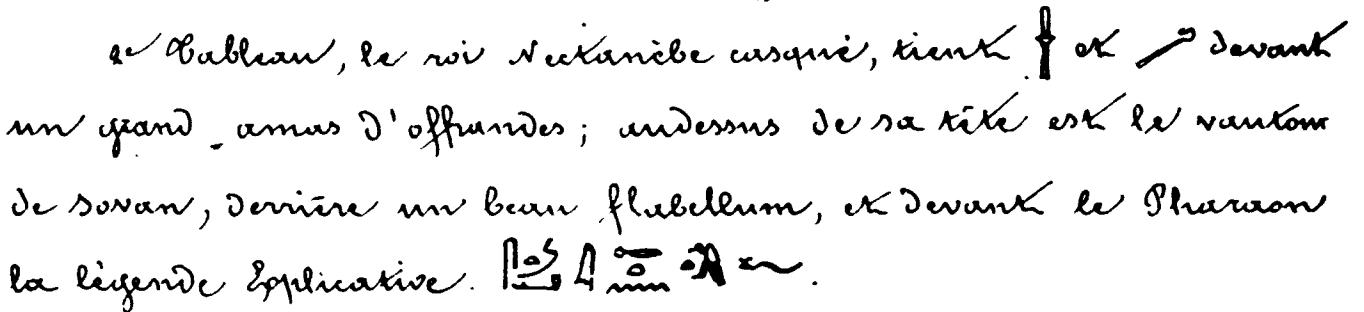 2e Tableau, le roi Nectanèbe casqué, tient et devant
un grand amas d'offrandes; audessus de sa tête est le vautour
de sovan, derrière un beau flabellum, et devant le Pharaon
la légende Explicative.